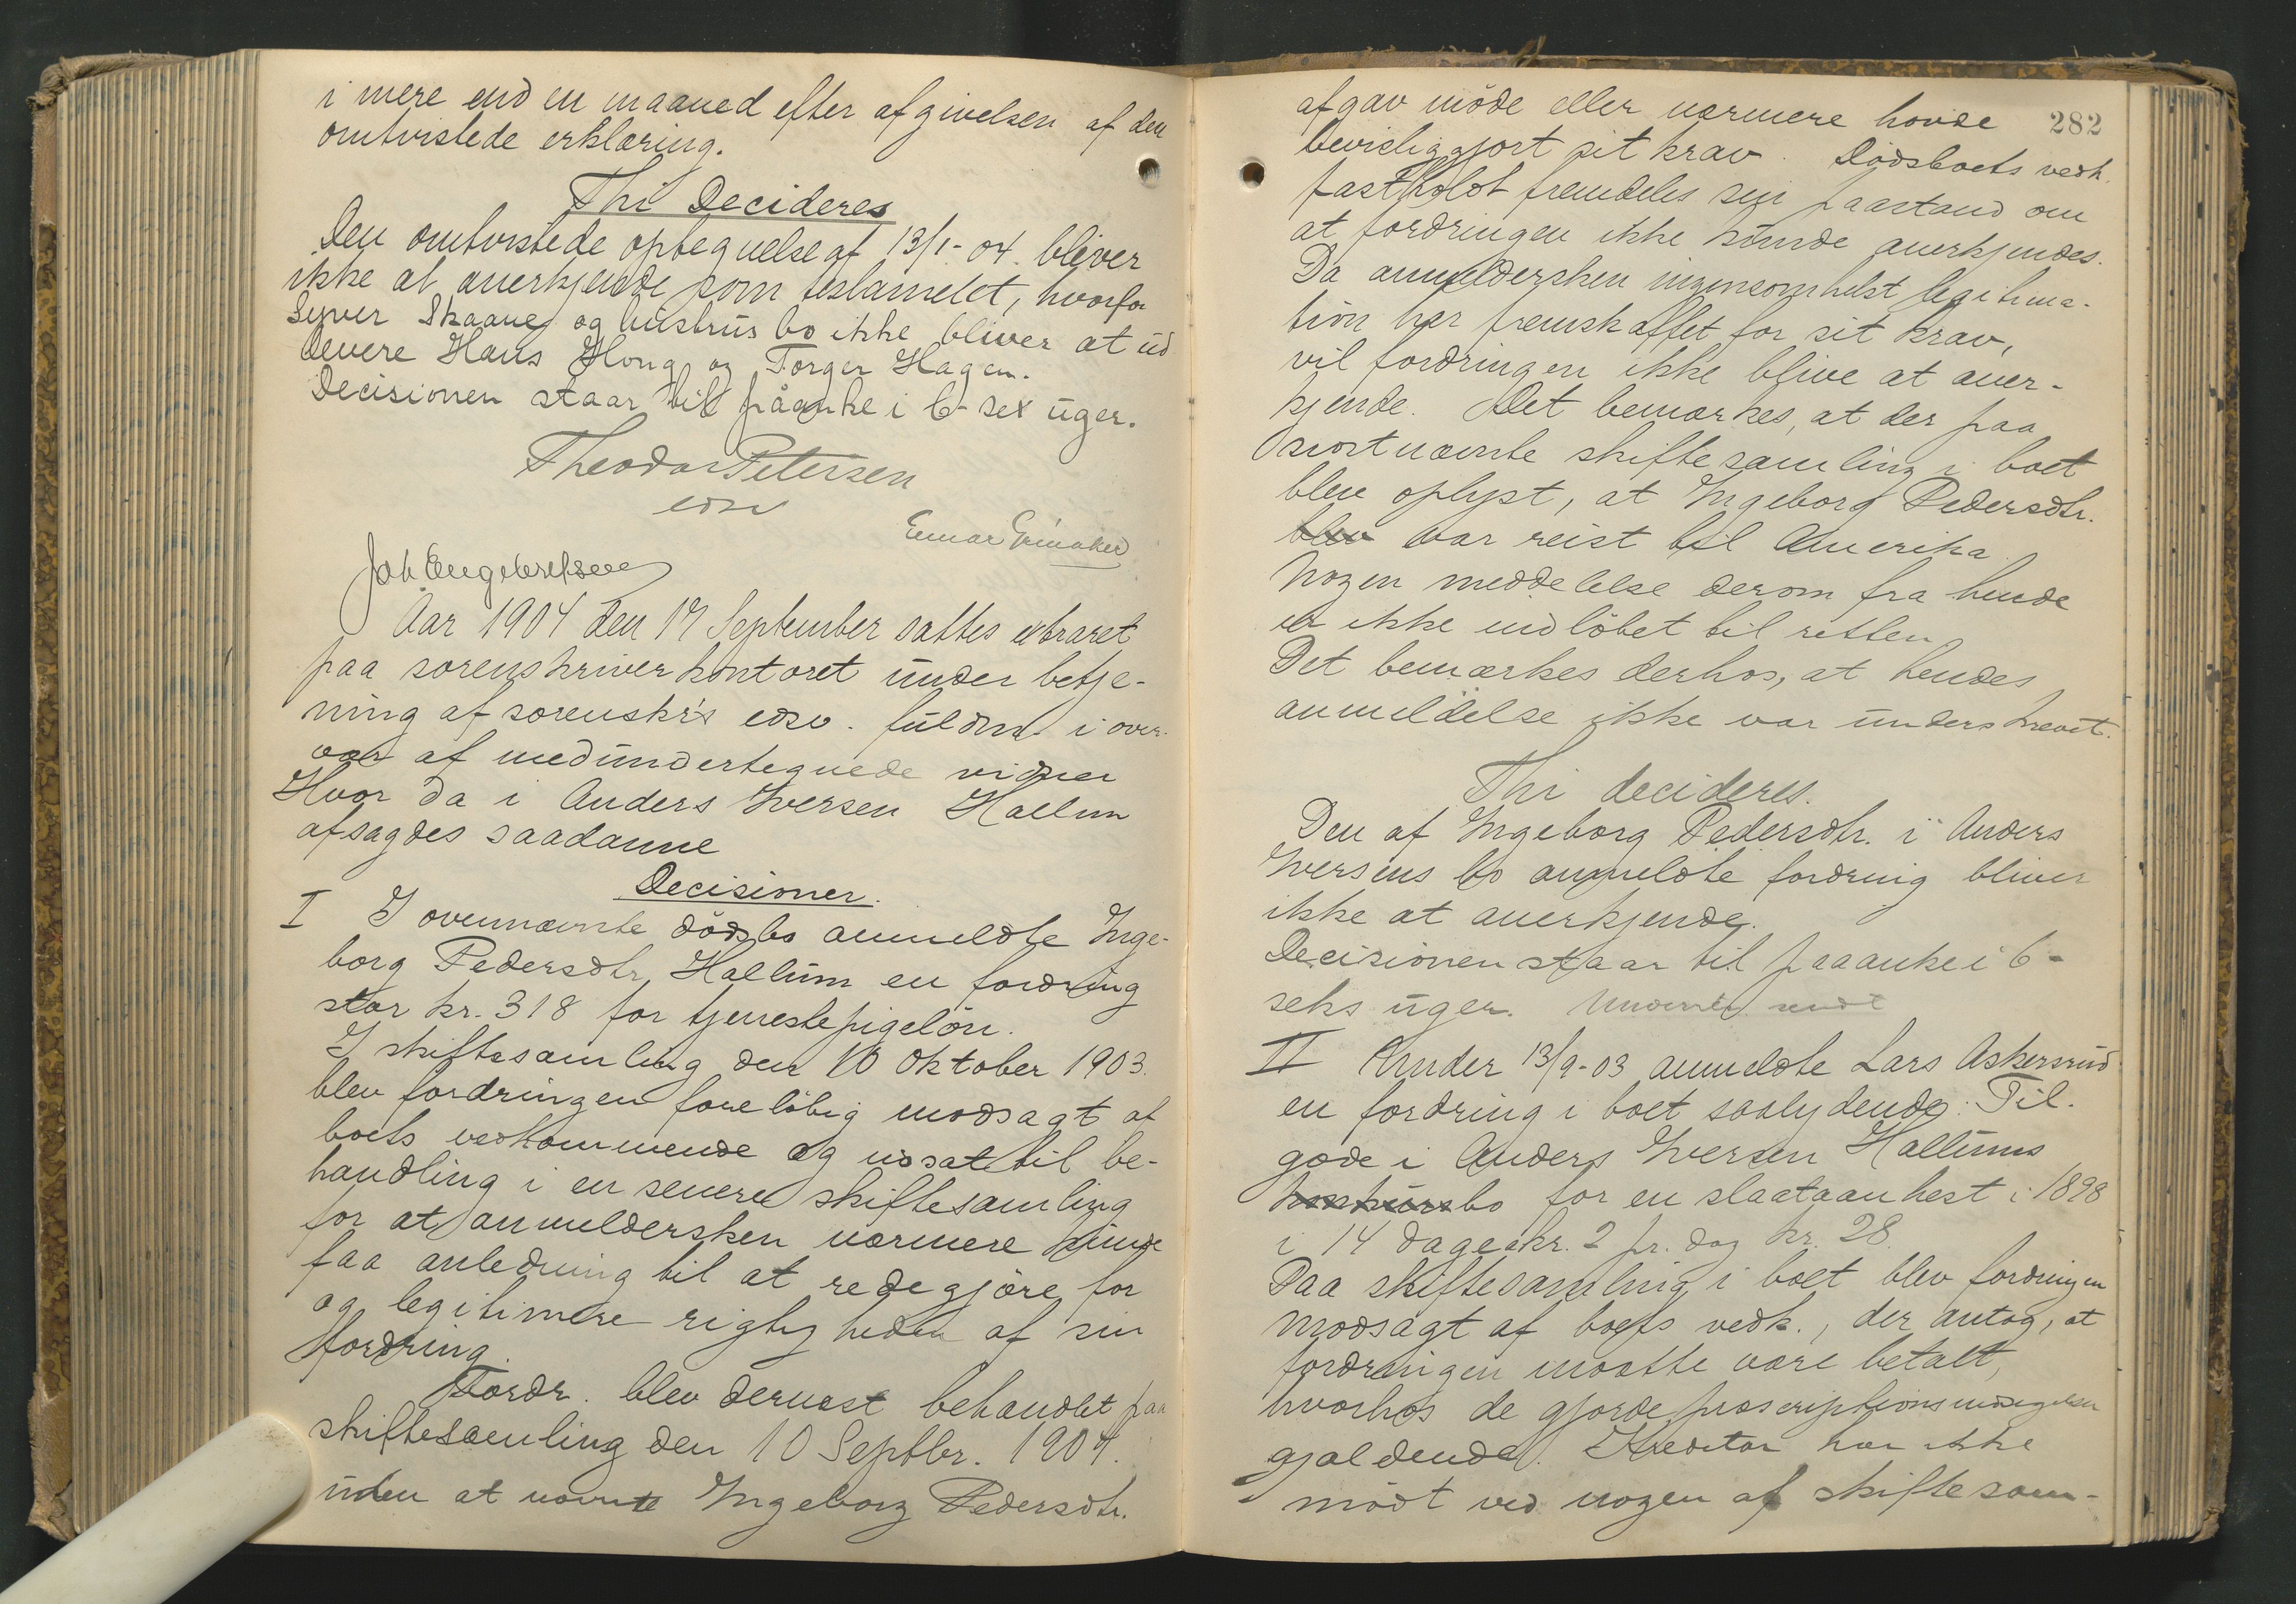 i mere end en maaned efter afgivelsen af den
omtvistede erklæring.
Thi Decideres
Den omtvistede optegnelse af 13/1-04. bliver
ikke at anerkjende som testamelet, hvorfor
Syver Skaanes og hustrus bo ikke bliver at ud
levere Hans Hong og Torger Hagen.
Decisionen staar til påanke i 6- sex uger.
Theodor Petersen
edsv
Einar Grinaker
Joh Engebretsen
Aar 1904 den 17 September sattes extraret
paa sorenskriverkontoret under betje-
ning af sorenskr's edsv. fuldm. i over-
vær af medundertegnede vidner
Hvor da i Anders Iversen Hallum
afsagdes saadanne
Decisioner.
I I ovennævnte dödsbo anmeldte Inge-
borg Pedersdtr. Hallum en fordring
stor kr. 318 for tjenestepigelön.
I skiftesamling den 10 Oktober 1903.
blev fordringen forelöbig modsagt af
boets vedkommende og udsat til be-
handling i en senere skiftesamling
for at anmeldersken nærmere kunde
faa anledning til at redegjöre for
og legitimere rigtigheden af sin
fordring.
Fordr. blev dernæst behandlet paa
skiftesamling den 10 Septbr. 1904.
uden at nævnte Ingeborg Pedersdtr.
282
afgav möde eller nærmere havde
bevisliggjort sit krav. Dödsboets vedk.
fastholdt fremdeles sin paastand om
at fordringen ikke kunde anerkjendes.
Da anmeldersken ingensomhelst legitima-
tion har fremskaffet for sit krav,
vil fordringen ikke blive at aner-
kjende. Det bemærkes, at der paa
sidstnævnte skiftesamling i boet
blev oplyst, at Ingeborg Pedersdtr.
blev var reist til Amerika.
Nogen meddelelse derom fra hende
er ikke indlöbet til retten.
Det bemærkes derhos, at hendes
anmeldelse ikke var underskrevet.
Thi decideres.
Den af Ingeborg Pedersdtr. i Anders
Iversens bo anmeldte fordring bliver
ikke at anerkjende.
Decisionen staar til paaanke i 6-
seks uger.
II Under 13/9-03 anmeldte Lars Askersrud
en fordring i boet saalydende: Til-
gode i Anders Iversen Hallums
konkursbo for en slaataanhest i 1898
i 14 dage a kr. 2 pr. dag kr. 28.
Paa skiftesamling i boet blev fordringen
modsagt af boets vedk., der antog, at
fordringen maatte være betalt,
hvorhos de gjorde præscriptionsindsigelsen
gjældende. Kreditor har ikke
mödt ved nogen af skiftesam-